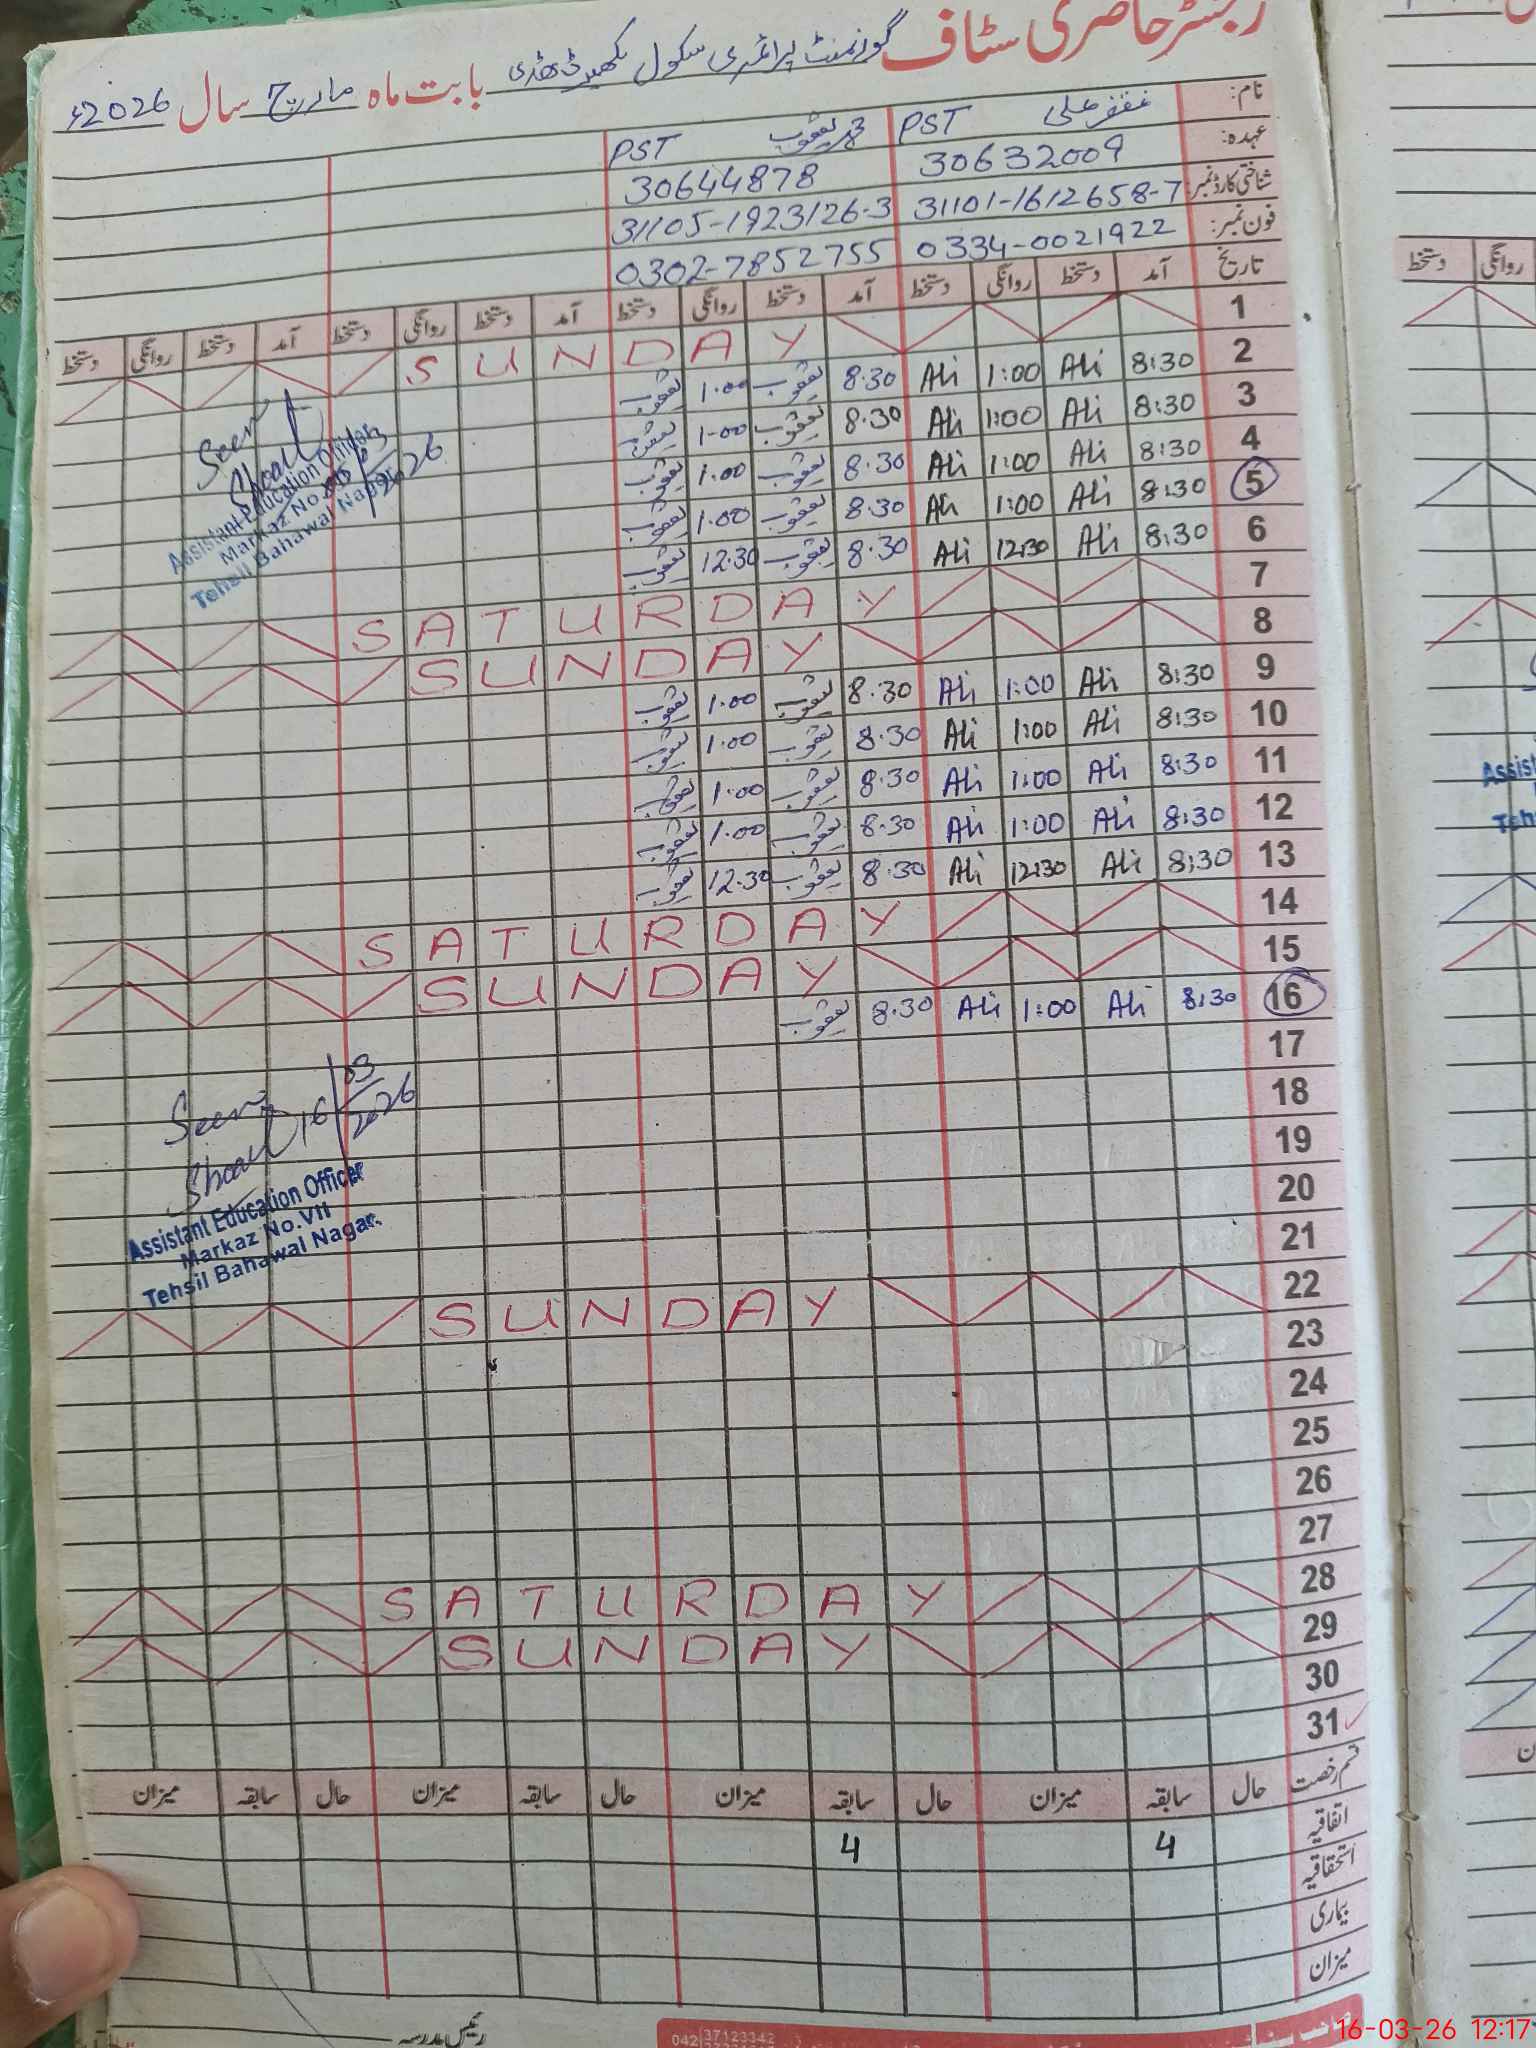 رجسٹر حاضری سٹاف گورنمنٹ پرائمری سکول بابت ماہ مارچ سال 2026ء
نام: غضنفر علی PST محمد یعقوب PST
عہدہ: 30632009 30644878
شناختی کارڈ نمبر: 31101-1612658-7 31105-1923126-3
فون نمبر: 0334-0021922 0302-7852755
تاریخ آمد دستخط روانگی دستخط آمد دستخط روانگی دستخط آمد دستخط روانگی دستخط آمد دستخط روانگی دستخط
1 SUNDAY
2 8:30 Ali 1:00 Ali 8.30 یعقوب 1.00 یعقوب
3 8:30 Ali 1:00 Ali 8.30 یعقوب 1.00 یعقوب
4 8:30 Ali 1:00 Ali 8.30 یعقوب 1.00 یعقوب
5 8:30 Ali 1:00 Ali 8.30 یعقوب 1.00 یعقوب
6 8:30 Ali 12:30 Ali 8.30 یعقوب 12.30 یعقوب
Seen
2026
Assistant Education Officer
Markaz No.
Tehsil Bahawal Nagar
7 SATURDAY
8 SUNDAY
9 8:30 Ali 1:00 Ali 8.30 یعقوب 1.00 یعقوب
10 8:30 Ali 1:00 Ali 8.30 یعقوب 1.00 یعقوب
11 8:30 Ali 1:00 Ali 8.30 یعقوب 1.00 یعقوب
12 8:30 Ali 1:00 Ali 8.30 یعقوب 1.00 یعقوب
13 8:30 Ali 12:30 Ali 8.30 یعقوب 12.30 یعقوب
14 SATURDAY
15 SUNDAY
16 8:30 Ali 1:00 Ali 8.30 یعقوب
17
18
19
20
21
Seen
16/03/2026
Assistant Education Officer
Markaz No.VII
Tehsil Bahawal Nagar.
22 SUNDAY
23
24
25
26
27
28 SATURDAY
29 SUNDAY
30
31
قسم رخصت حال سابقہ میزان حال سابقہ میزان حال سابقہ میزان حال سابقہ میزان
اتفاقیہ 4 4
استحقاقیہ
بیماری
میزان
رئیس مدرسہ
042 37123342
روانگی دستخط
16-03-26 12:17